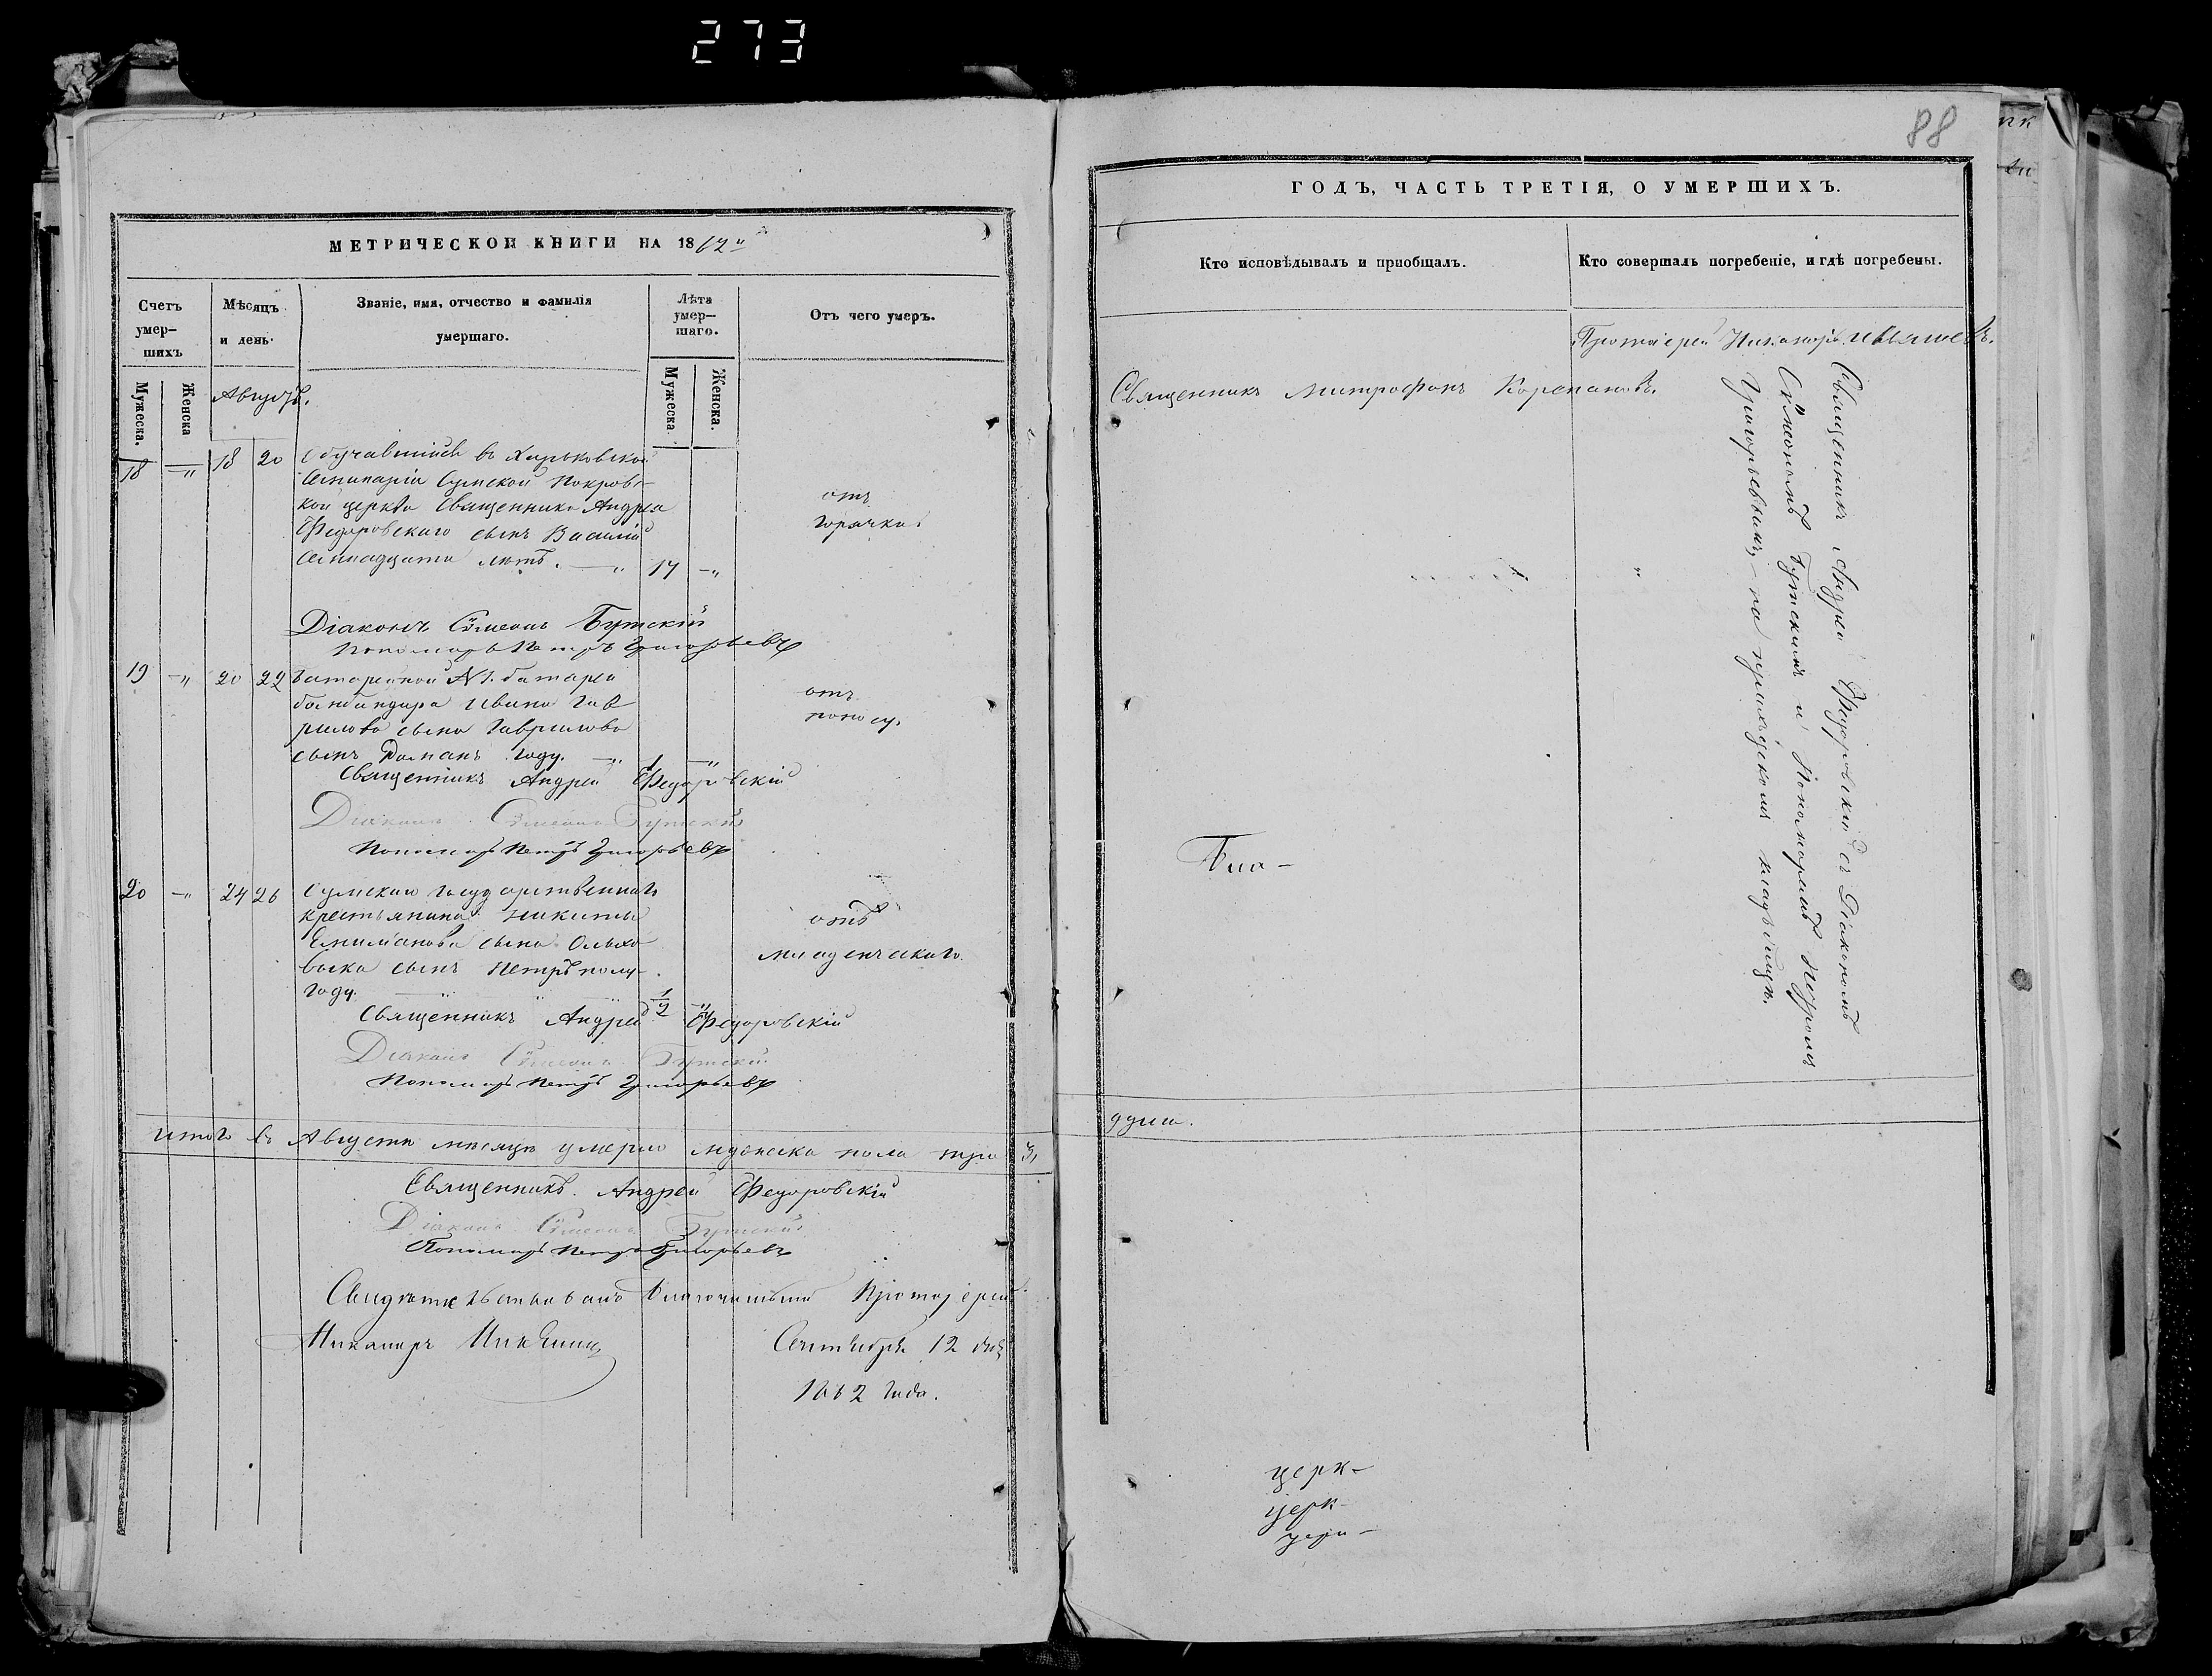 273
88
МЕТРИЧЕСКОЙ КНИГИ НА 1862"
Счетъ умер–шихъ
Мужеска.
Женска
Мѣсяцъ и день.
Званіе, имя, отчество и фамилія
умершаго.
Лѣта умер–шаго.
Мужеска
Женска.
Отъ чего умеръ.
Августъ.
18 –" 18 20 Обучавшійся въ Харьковской
Семинаріи Сумской Покровс–
кой церкви Священника Андрея
Федоровскаго сынъ Василій
семнадцати лѣтъ. —" 17 –"
отъ
горячки
Діаконъ Сѵмеонъ Бутскій
Пономарь Петръ Григорьевъ
19 –" 20 22 Батарейной №1. батареи
бомбандира Ивана Гав
рилова сына Гаврилова
сынъ Романъ году. —" 1 –"
отъ
поносу.
Священникъ Андрей Федоровскій
Діаконъ Сѵмеонъ Бутскій
Пономарь Петръ Григорьевъ
20 –" 24 26 Сумскаго государственнаго
крестьянина Никиты
сына Ольхо
вика сынъ Петръ полу–
году. 1/2 –"
отъ
младенческаго.
Священникъ Андрей Федоровскій
Діаконъ Сѵмеонъ Бутскій
Пономарь Петръ Григорьевъ
Итого въ Августѣ мѣсяцѣ умерло мужеска пола три 3,
Священникъ Андрей Федоровскій
Діаконъ Сѵмеонъ Бутскій
Пономарь Петръ Григорьевъ
Благочинный Протоіерей
Никаноръ
Сентября 12 дня
1862 года.
ГОДЪ, ЧАСТЬ ТРЕТІЯ, О УМЕРШИХЪ.
Кто исповѣдывалъ и пріобщалъ.
Кто совершалъ погребеніе, и гдѣ погребены.
Протоіерей Никаноръ
Священникъ Митрофанъ
Священникъ Андрей Федоровскій съ Діакономъ
Сѵмеономъ Бутскимъ и Пономаремъ Петромъ
Григорьевымъ, – на приходскомъ кладбищѣ.
Бла–
душъ.
церк–
церк–
церк–